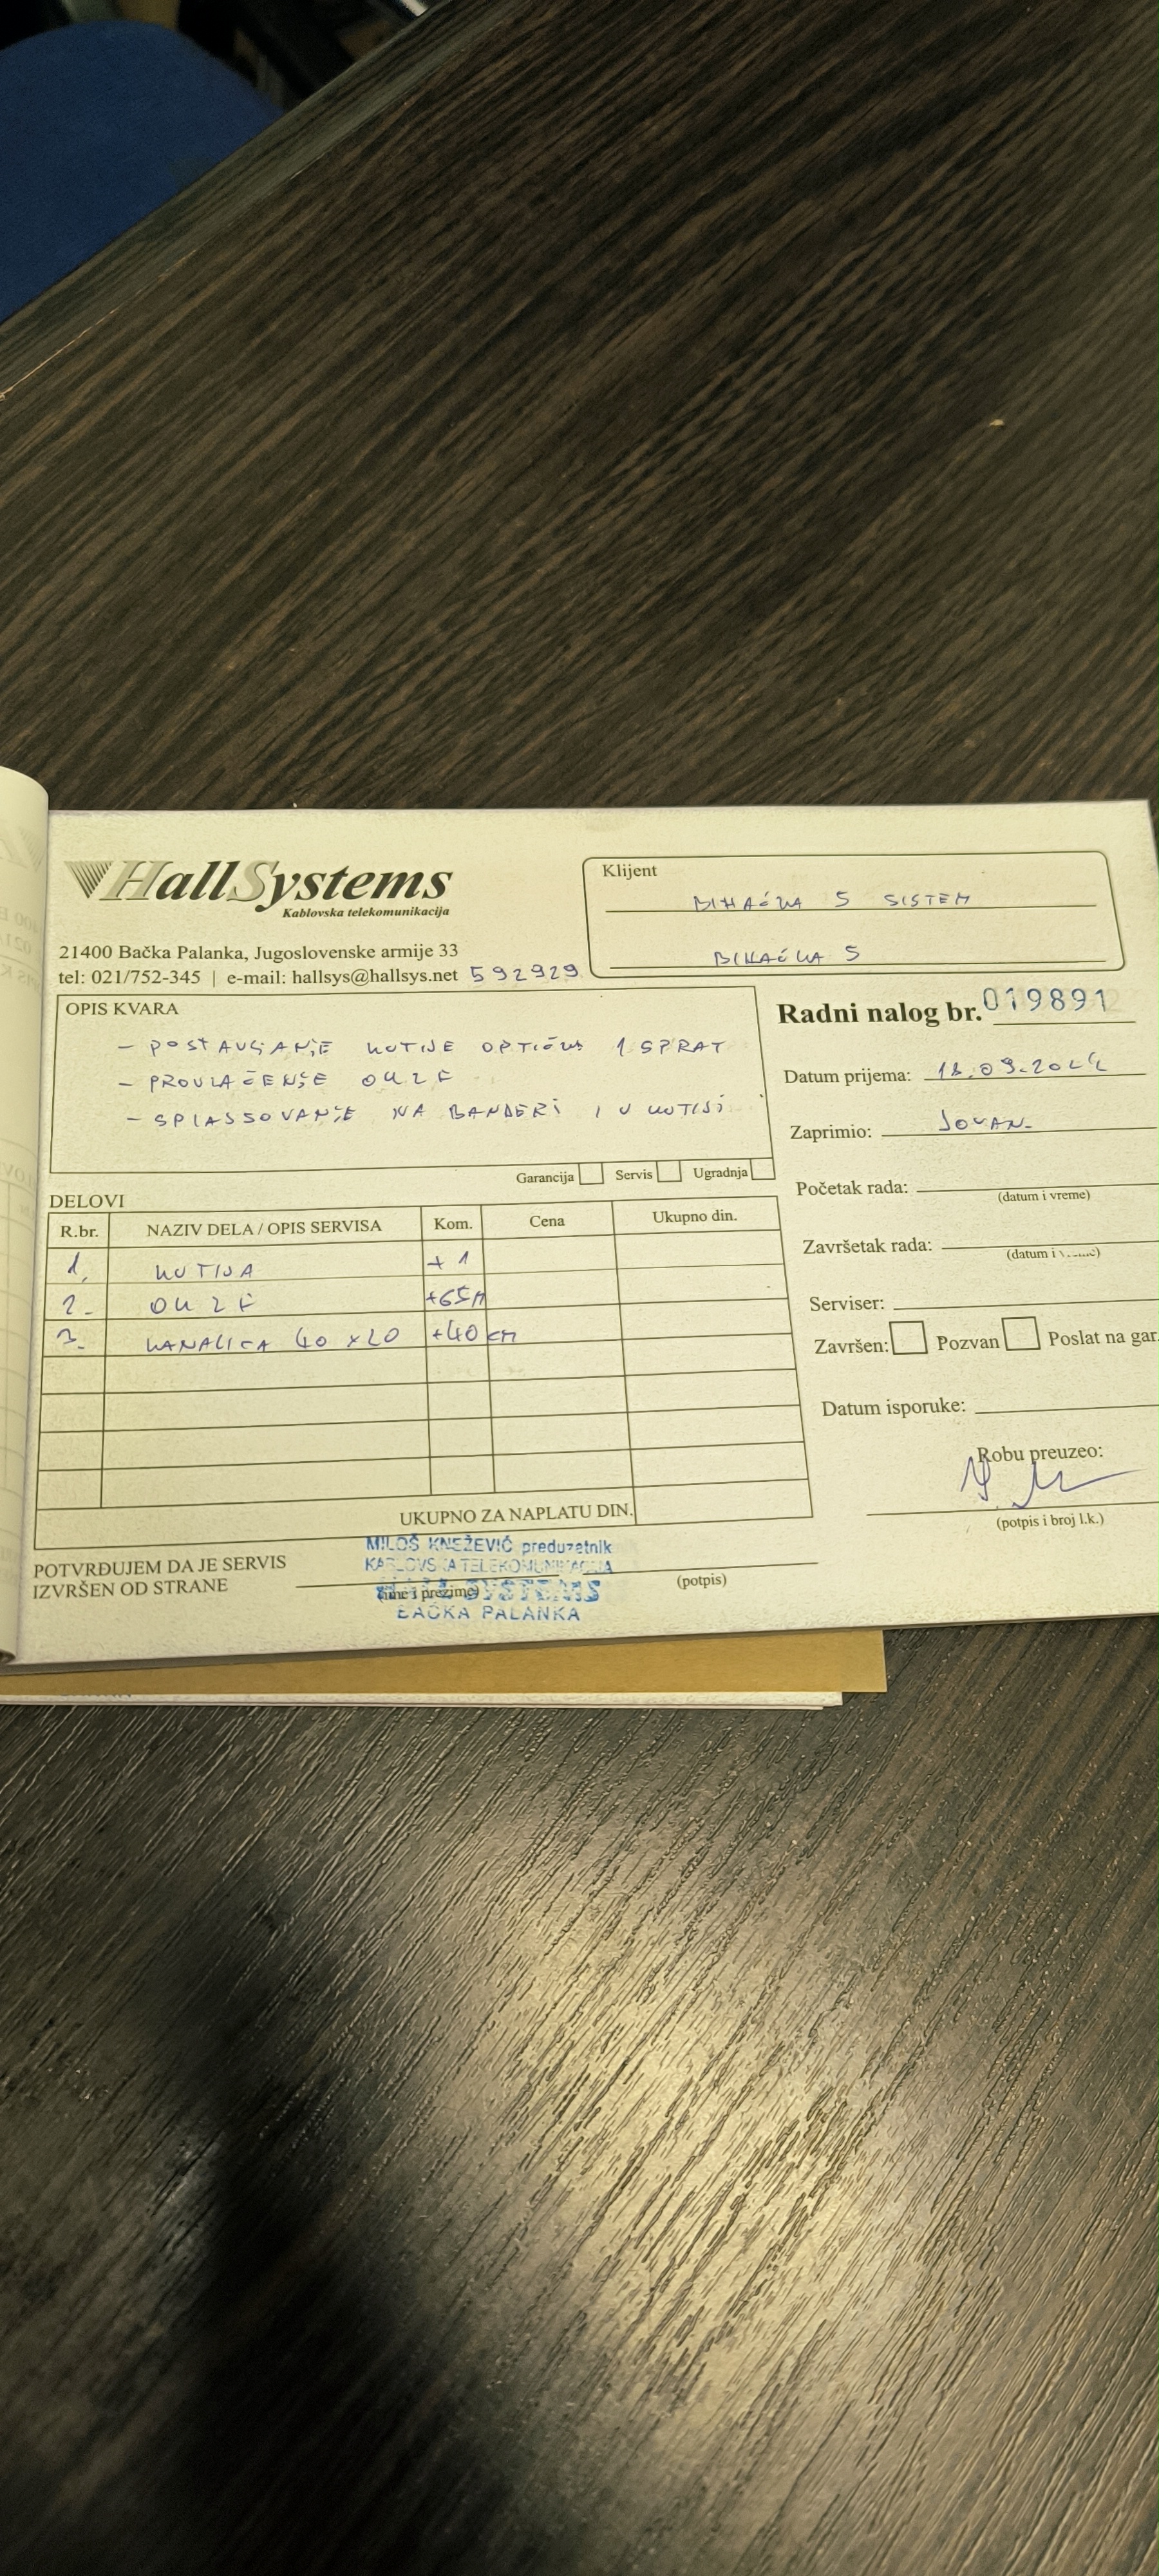 HallSystems
Kablovska telekomunikacija
21400 Bačka Palanka, Jugoslovenske armije 33
tel: 021/752-345 | e-mail: hallsys@hallsys.net 592929
Klijent
BIHAĆKA 5 SISTEM
BIHAĆKA 5
OPIS KVARA
- POSTAVLJANJE KUTIJE OPTIČKE 1 SPRAT
- PROVLAČENJE OK2F
- SPLAJSOVANJE NA BANDERI I U KUTIJI
Garancija Servis Ugradnja
Radni nalog br. 019891
Datum prijema: 18.09.
Zaprimio: JOVAN
Početak rada:
(datum i vreme)
Završetak rada:
(datum i
Serviser:
Završen: Pozvan Poslat na gar.
Datum isporuke:
Robu preuzeo:
(potpis i broj l.k.)
DELOVI
R.br. NAZIV DELA / OPIS SERVISA Kom. Cena Ukupno din.
1. KUTIJA +1
2. OK2F +65m
3. KANALICA 40x20 +40cm
UKUPNO ZA NAPLATU DIN.
POTVRĐUJEM DA JE SERVIS
IZVRŠEN OD STRANE
(ime i prezime)
(potpis)
MILOŠ KNEŽEVIĆ preduzetnik
KABLOVSKA TELEKOMUNIKACIJA
HALL SYSTEMS
BAČKA PALANKA